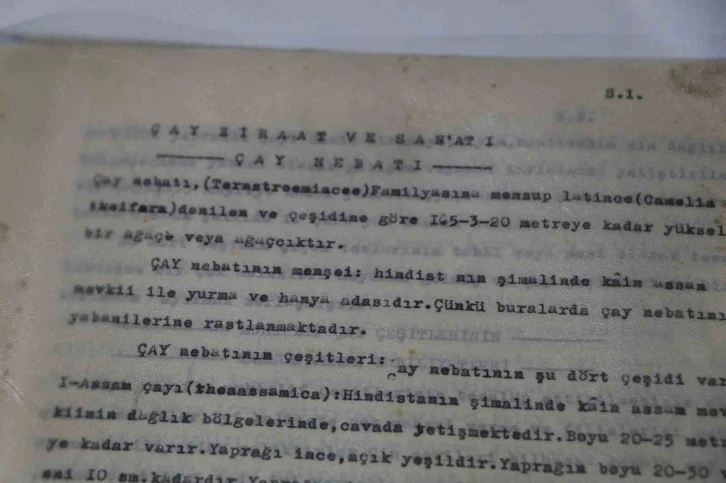 S.I.
ÇAY ZİRAAT VE SAN'ATI
ÇAY NEBATI
Çay nebatı,(Ternstroemiacee)Familyasına mensup latince(Camelia
theifara)denilen ve çeşidine göre I65-3-20 metreye kadar yüksel
bir ağaçe veya ağaççıktır.
ÇAY nebatının menşei: hindist nın şimalinde kâin assam
mevkii ile yurma ve hanya adasıdır.Çünkü buralarda çay nebatını
yabanilerine rastlanmaktadır.
ÇAY nebatının çeşitleri: çay nebatının şu dört çeşidi var
I-Assam çayı(theaassamica):Hindistanın şimalinde kâin assam mev
kiinin dağlık bölgelerinde,cavada yetişmektedir.Boyu 20-25 metr
ye kadar varır.Yaprağı ince,açık yeşildir.Yaprağın boyu 20-30
eni IO sm.kadardır.